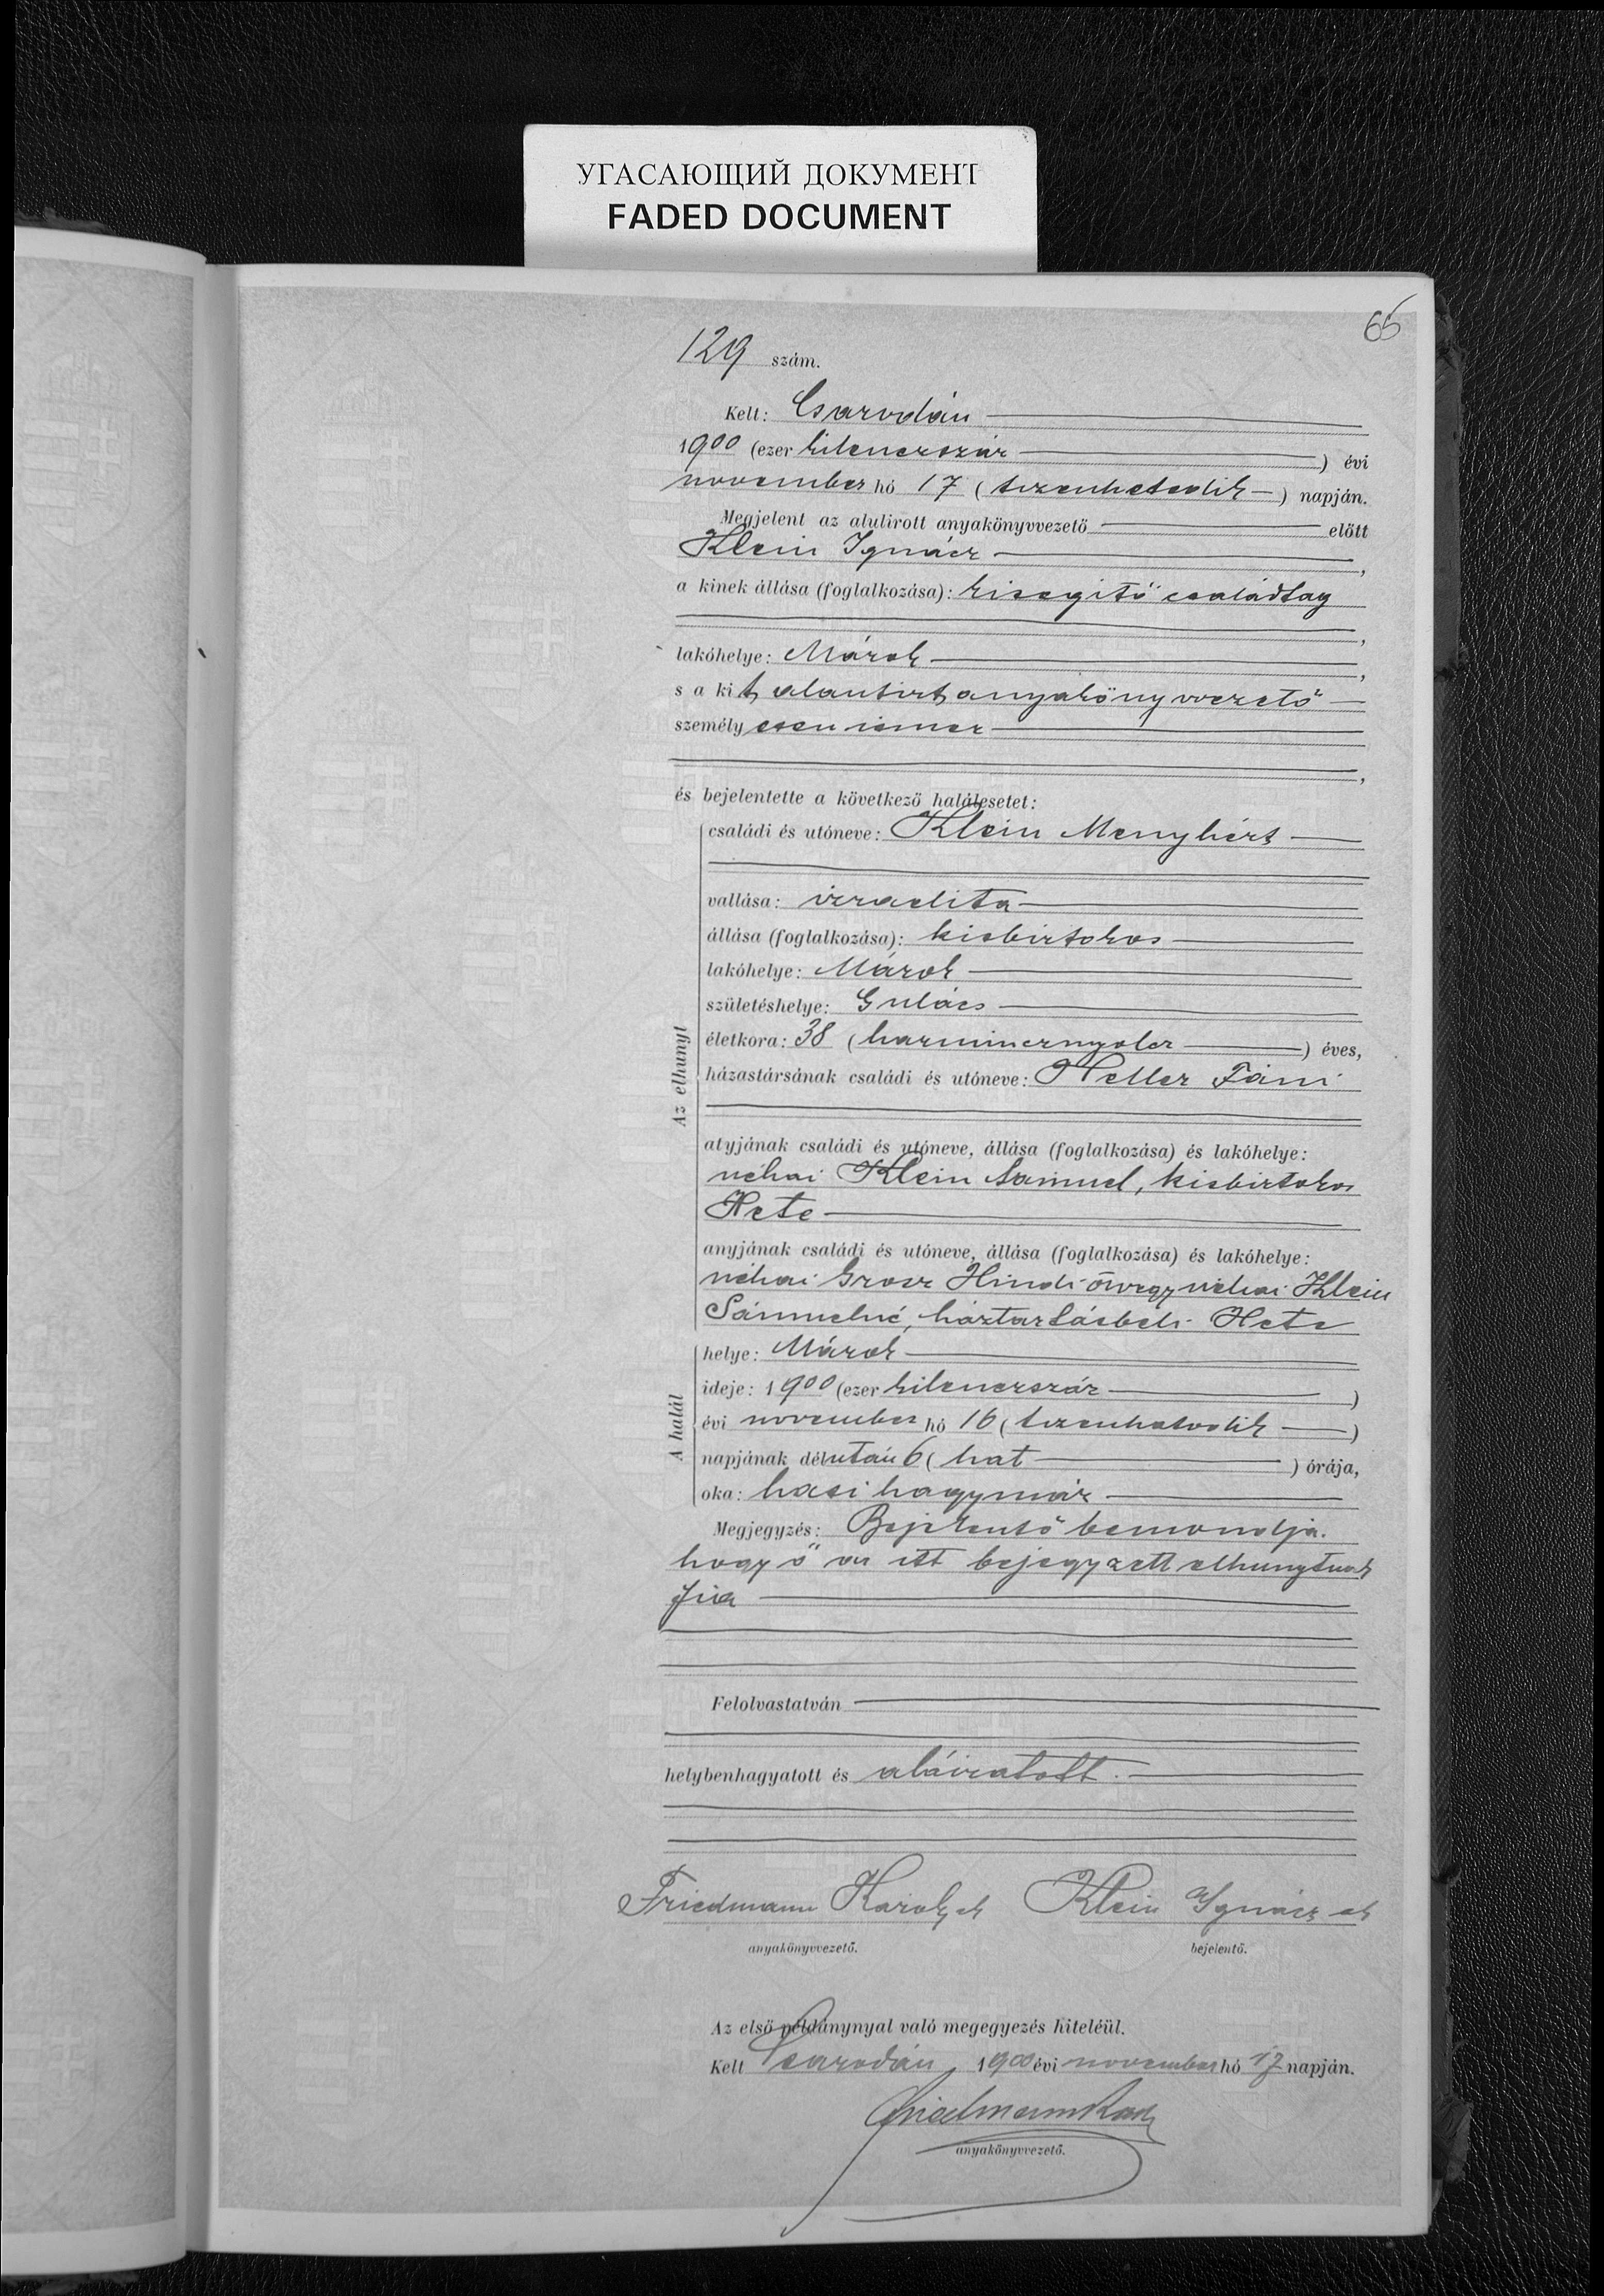 УГАСАЮЩИЙ ДОКУМЕНТ
FADED DOCUMENT
65
129 szám.
Kelt: Csarodán
1900 (ezer kilenczszáz ) évi
november hó 17 (tizenhetedik) napján.
Megjelent az alulirott anyakönyvvezető előtt
Klein Ignácz ,
a kinek állása (foglalkozása): kisegítő családtag
,
lakóhelye: Márok ,
s a kit alantirt anyakönyvvezető
személyesen ismer
,
és bejelentette a következő halálesetet:
Az elhunyt
családi és utóneve: Klein Menyhért
vallása: izraelita
állása (foglalkozása): kisbirtokos
lakóhelye: Márok
születéshelye: Gulács
életkora: 38 (harmincznyolcz ) éves,
házastársának családi és utóneve: Heller Fáni
atyjának családi és utóneve, állása (foglalkozása) és lakóhelye:
néhai Klein Sámuel, kisbirtokos
Hete
anyjának családi és utóneve, állása (foglalkozása) és lakóhelye:
néhai Grosz Hindi özvegy néhai Klein
Sámuelné, háztartásbeli Hete
A halál
helye: Márok
ideje: 1900 (ezer kilenczszáz )
évi november hó 16 (tizenhatodik )
napjának délután 6 (hat ) órája,
oka: hasi hagymáz
Megjegyzés: Bejelentő bemondja.
hogy ő az itt bejegyzett elhunytnak
fia
Felolvastatván
helybenhagyatott és aláiratott.
Friedmann Károly sk Klein Ignácz sk
anyakönyvvezető. bejelentő.
Az első példánynyal való megegyezés hiteléül.
Kelt Csarodán, 1900 évi november hó 17 napján.
Friedmann Károly
anyakönyvvezető.